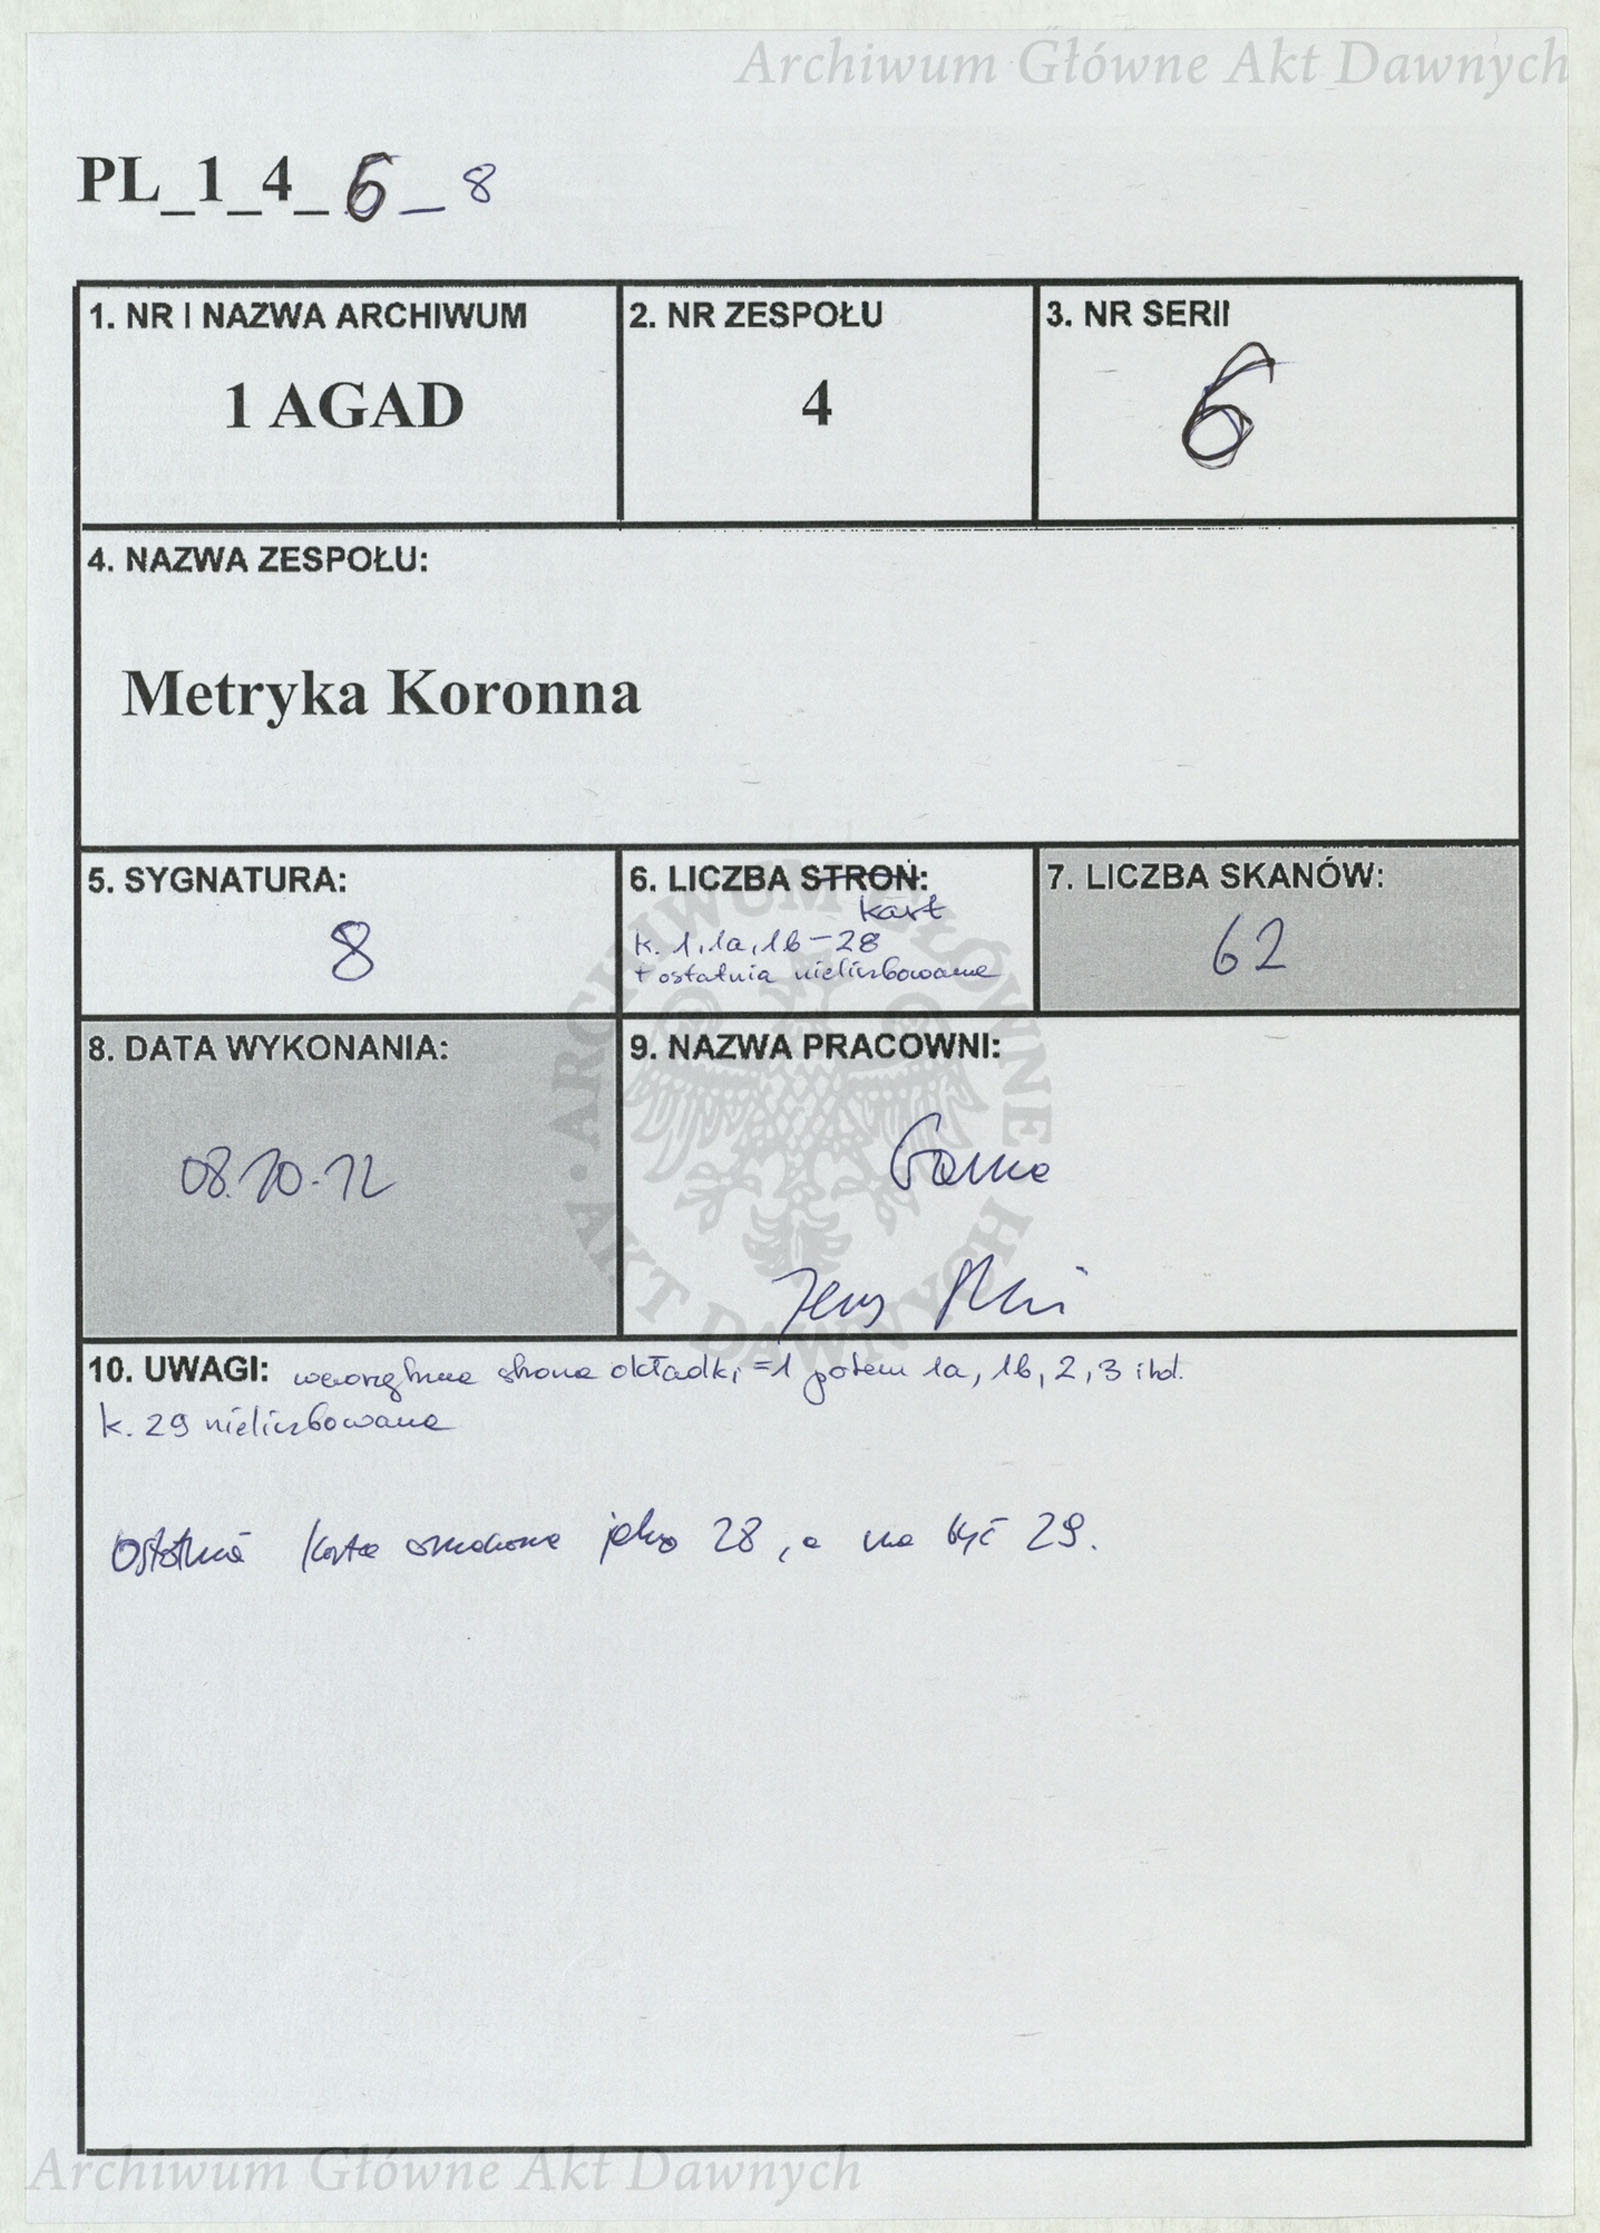 Archiwum Główne Akt Dawnych
PL_1_4_6_8
1. NR I NAZWA ARCHIWUM
1 AGAD
2. NR ZESPOŁU
4
3. NR SERII
6
4. NAZWA ZESPOŁU:
Metryka Koronna
5. SYGNATURA:
8
6. LICZBA STRON:
kart
k. 1, 1a, 1b – 28
+ ostatnia nieliczbowana
7. LICZBA SKANÓW:
62
8. DATA WYKONANIA:
08.10.12
9. NAZWA PRACOWNI:
10. UWAGI: wewnętrzna strona okładki = 1 potem 1a, 1b, 2, 3 itd.
k. 29 nieliczbowana
Ostatnia karta oznaczona jako 28, a ma być 29.
ARCHIWUM GŁÓWNE AKT DAWNYCH
Archiwum Główne Akt Dawnych